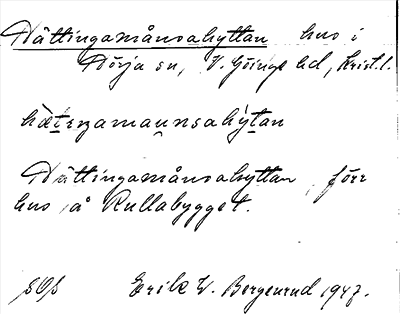 Hättingamånsahyttan hus i
Nörja sn, V. Göinge hd, Krist. l.
hätiŋamau̯nsahy̌tan
Hättingamånsahyttan, förr
hus å Rullabygget.
SOs Erik W. Bergenrud 1947.